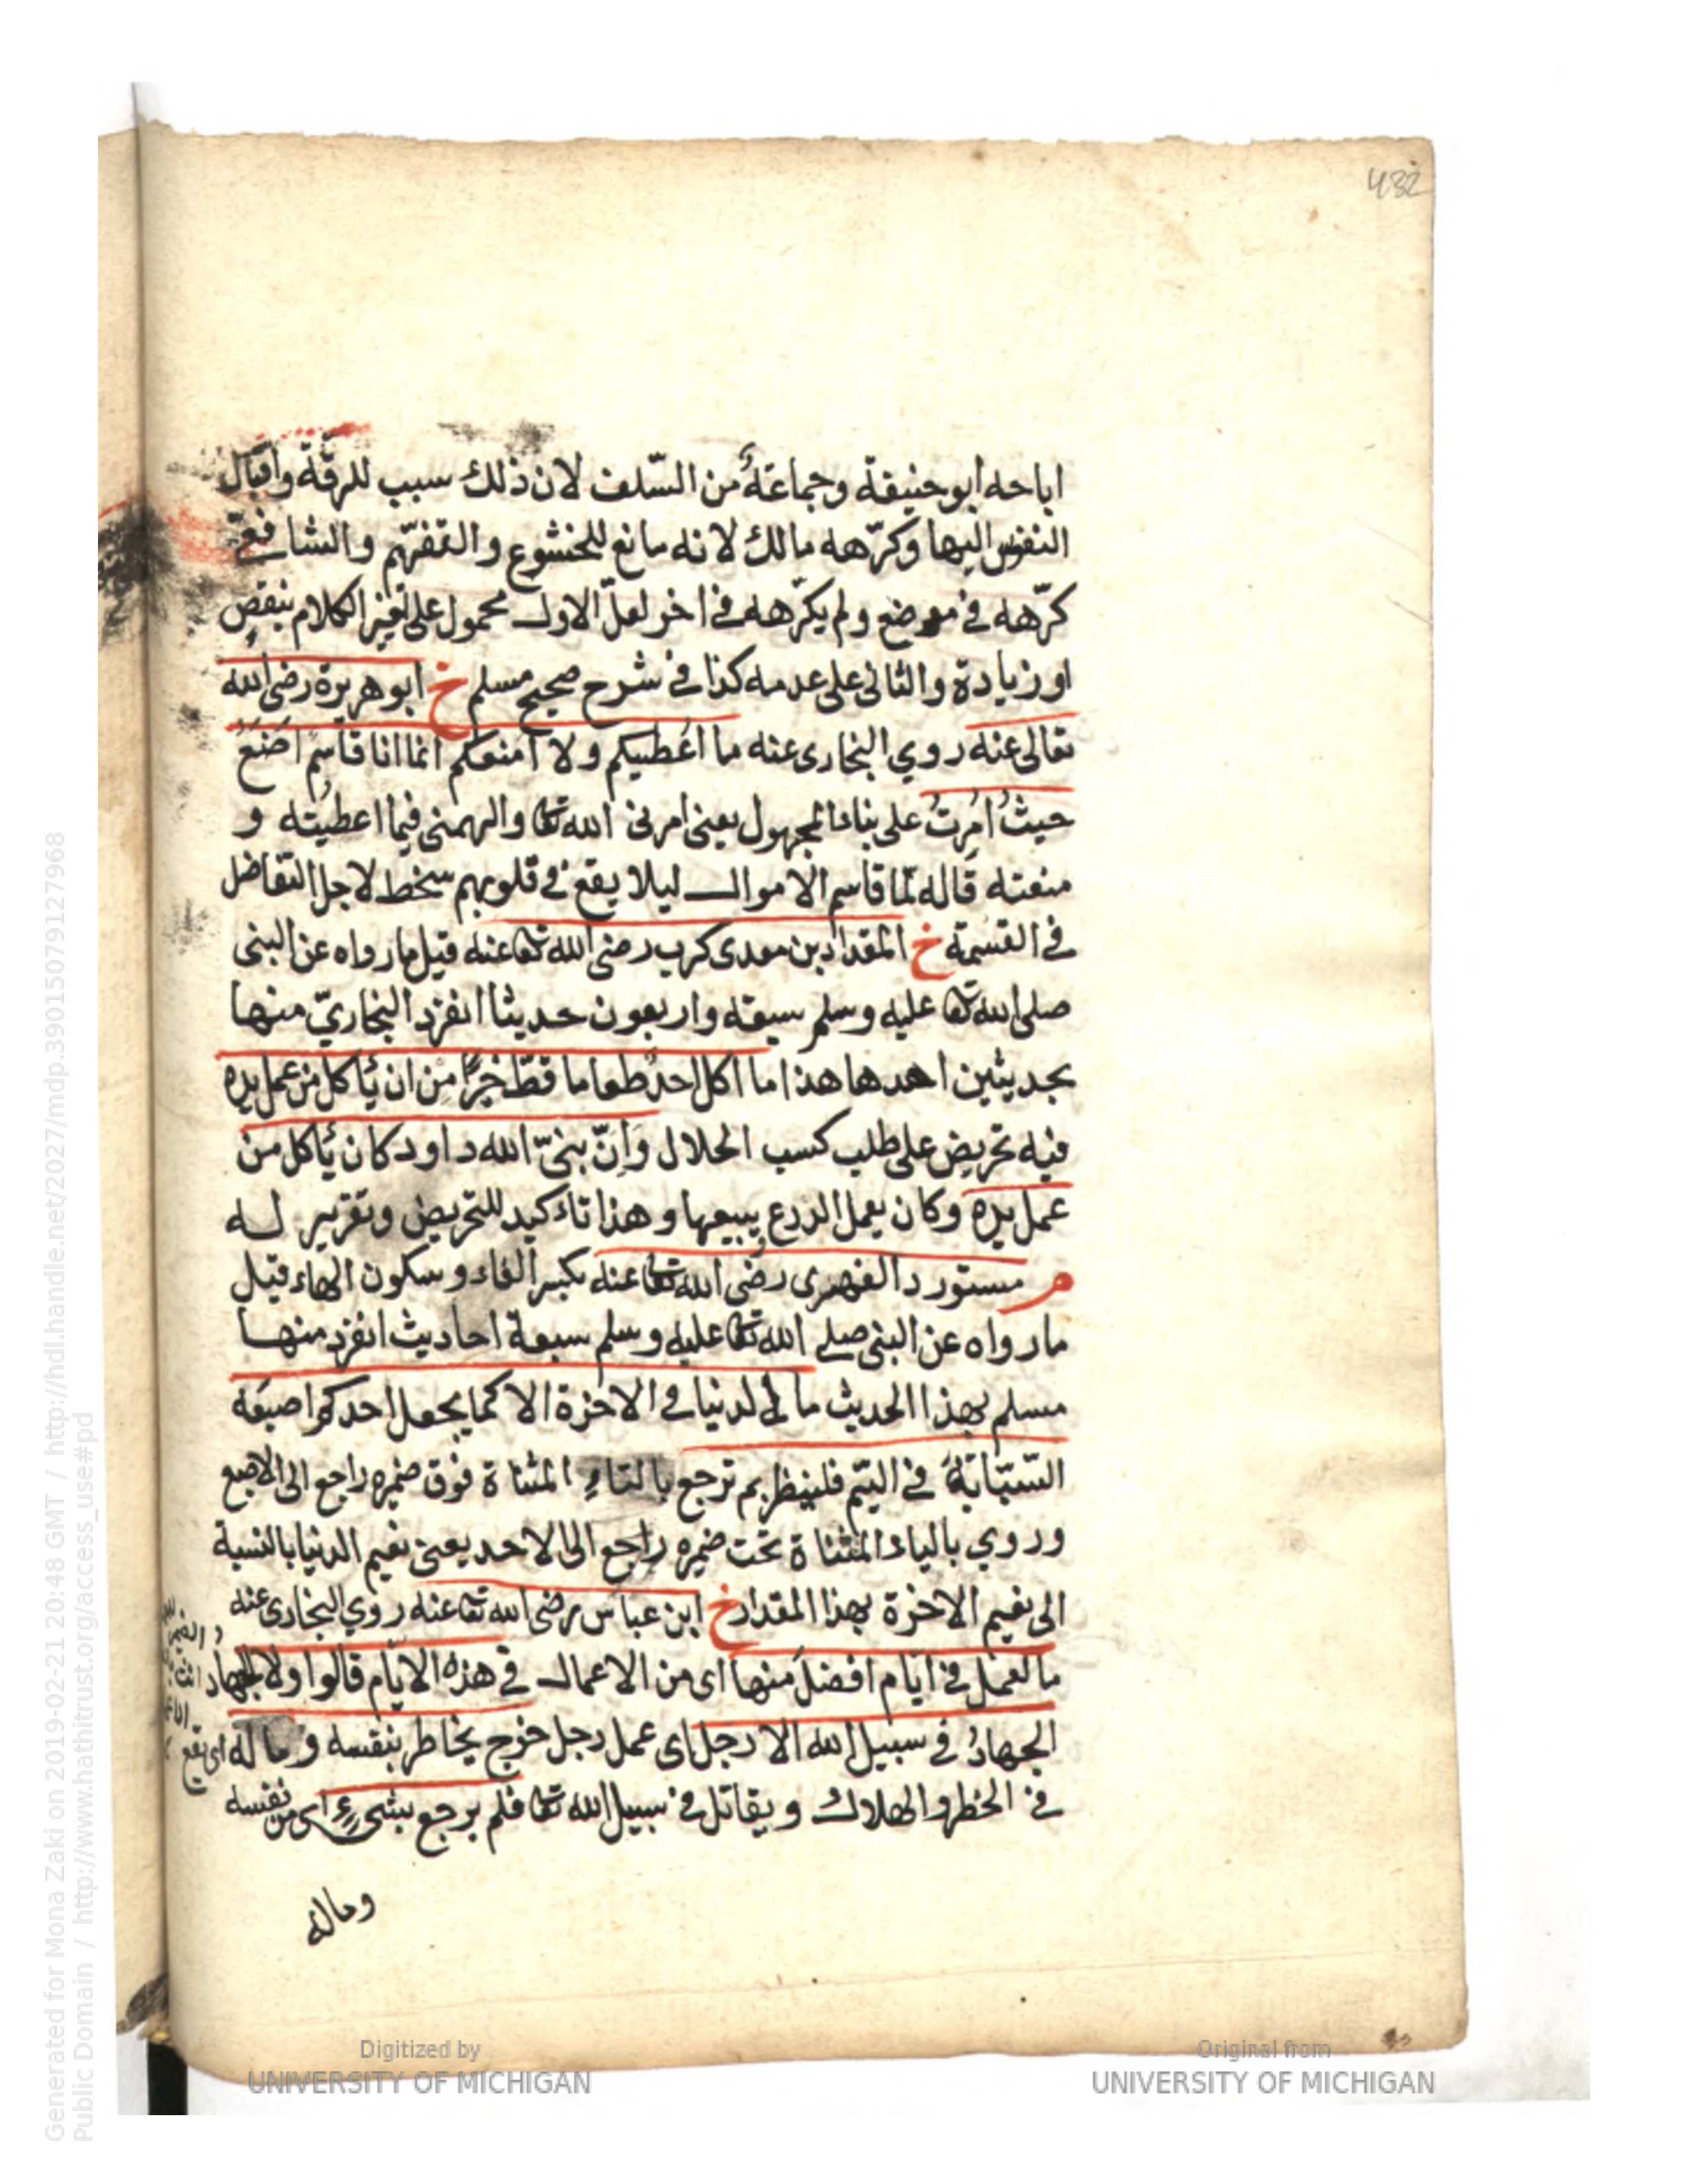 432
اباحه ابو حنيفة وجماعةٌ من السّلف لان ذلك سبب للرقّة واقبال
النفوس اليها وكرّهه مالك لانه مانع للخشوع والتفهّم والشافعىّ
كرّهه فى موضع ولم يكرّهه فى اخر لعلّ الاول محمول على تغير الكلام بنقصٍ
او زيادة والثانى على عدمه كذا فى شرح صحيح مسلم خ ابو هريرة رضى الله
تعالى عنه روي البخارى عنه ما اعُطيكم ولا امنعكم انما انا قاسمٌ اضَعُ
حيثُ امُرتُ على بناء المجهول يعنى امرنى الله تعا والهمنى فيما اعطيُته و
منعته قاله لمّا قاسم الاموال ليلا يقع فى قلوبهم سخط لاجل التفاضل
فى القسمة خ المقداد بن معدى كرب رضى الله تعا عنه قيل ما رواه عن النبى
صلى الله تعا عليه وسلم سبعة واربعون حديثا انفرد البخاريّ منها
بحديثين احدها هذا ما اكل احدٌ طعاما قطّ خيرًا من ان ئاكل من عمل يده
فيه تحريض على طلب كسب الحلال وَاِنّ نبىّ الله داود كان ئاكل من
عمل يده وكان يعمل الدرع يبيعها وهذا تاءكيد للتحريض وتقرير له
م مستورد الفهرى رضى الله تعا عنه بكسر الفاء وسكون الهاء قيل
ما رواه عن النبى صلى الله تعا عليه وسلم سبعة احاديث انفرد منها
مسلم بهذا الحديث ما فى الدنيا فى الاخرة الا كما يجعل احدكم اصبعَه
السّبّابةَ فى اليّم فلينظر بم ترجع بالتاءِ المثناة فوق ضميره راجع الى الاصبع
وروي بالياء المثناة تحت ضميره راجع الى الاحد يعنى نعيم الدنيا بالنسبة
الى نعيم الاخرة بهذا المقدار خ ابن عباس رضى الله تعا عنه روي البخارى عنه
ما لعمل فى ايام افضلَ منها اى من الاعمال فى هذه الايّام قالوا ولا الجهاد
الجهادُ فى سبيل الله الا رجل اى عمل رجل خرج يخاطر بنفسه وماله اى يقع
فى الخطر والهلاك ويقاتل فى سبيل الله تعا فلم يرجع بشىءٍ اى من نفسه
وماله
Generated for Mona Zaki on 2019-02-21 20:48 GMT / http://hdl.handle.net/2027/mdp.39015079127968
Public Domain / http://www.hathitrust.org/access_use#pd
Digitized by
UNIVERSITY OF MICHIGAN
Original from
UNIVERSITY OF MICHIGAN